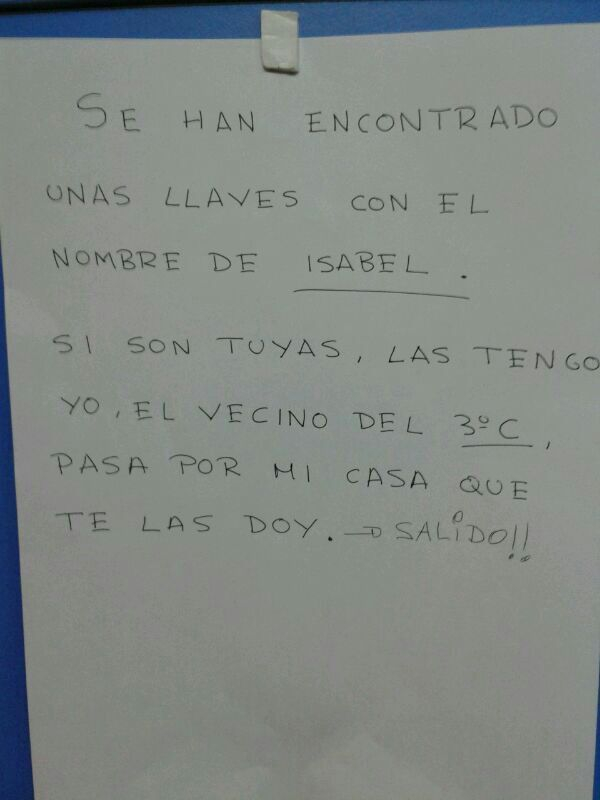 SE HAN ENCONTRADO
UNAS LLAVES CON EL
NOMBRE DE ISABEL.
SI SON TUYAS, LAS TENGO
YO, EL VECINO DEL 3º C,
PASA POR MI CASA QUE
TE LAS DOY. → SALIDO!!